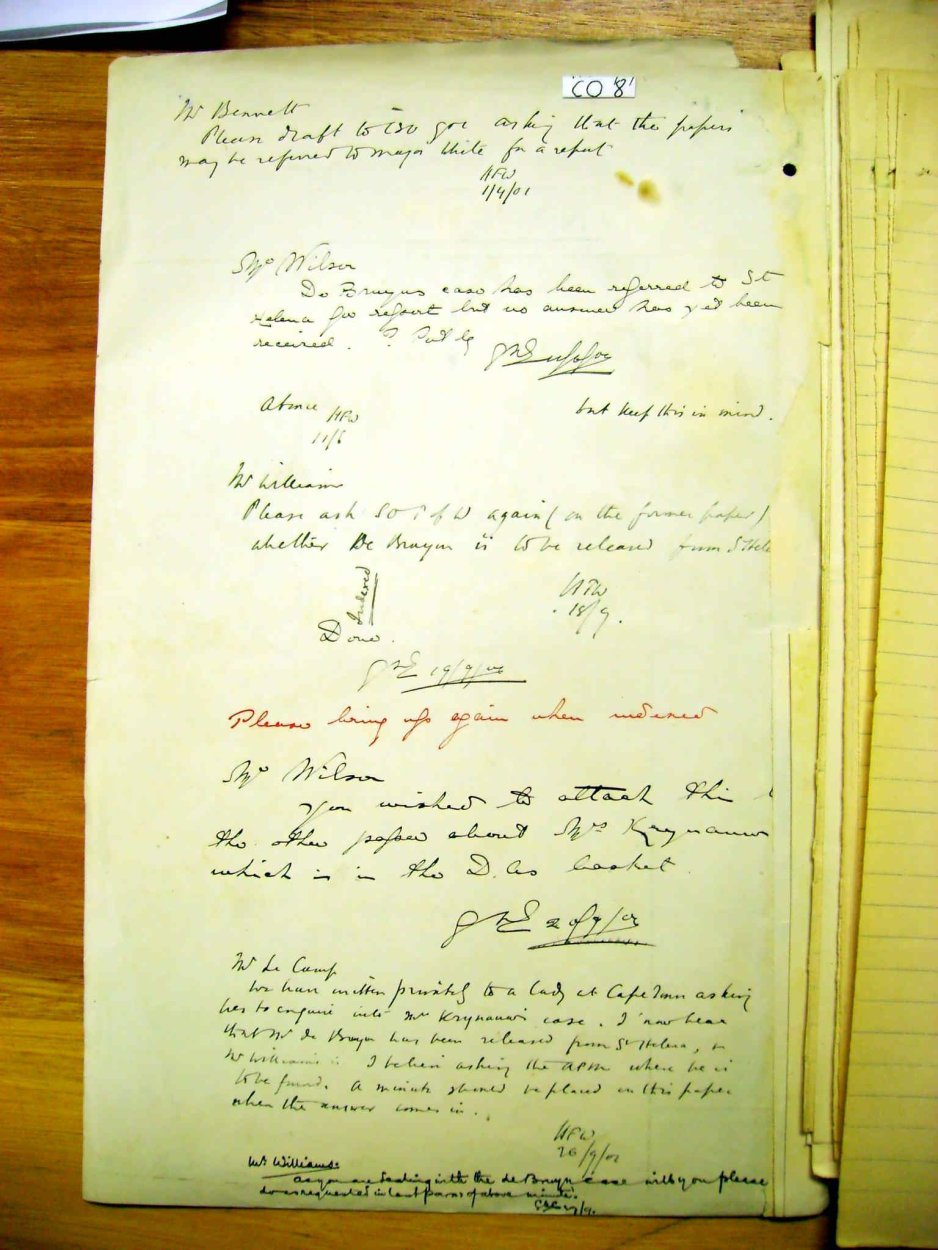 CO '8'
Mr Bennett
Please draft to gov asking that the papers
may be referred to Major White for a report
HFW
1/4/01
Mr Wilson
De Bruyns case has been referred to St
Helena for report but no answer has yet been
received. ? Put by
but keep this in mind.
HFW
11/6
Mr Williams
Please ask S of P of W again (on the former paper)
whether De Bruyn is to be released from St Hele
HFW
18/9.
Indexed
Done.
19/9/02
Please bring up again when indexed
Mr Wilson
You wished to attach this
the other paper about Mrs Krynauw
which is in the D. As basket.
Mr Le Camp
We have written privately to a lady at Cape Town asking
her to enquire into Mrs Krynauw's case. I now hear
that Mr de Bruyn has been released from St Helena, &
Mr Williams is I believe asking the APM where he is
to be found. A minute should be placed on this paper
when the answer comes in.
HFW
26/9/02
Mr Williams:
as you are dealing with the de Bruyn case will you please
do as requested in last para of above minute.